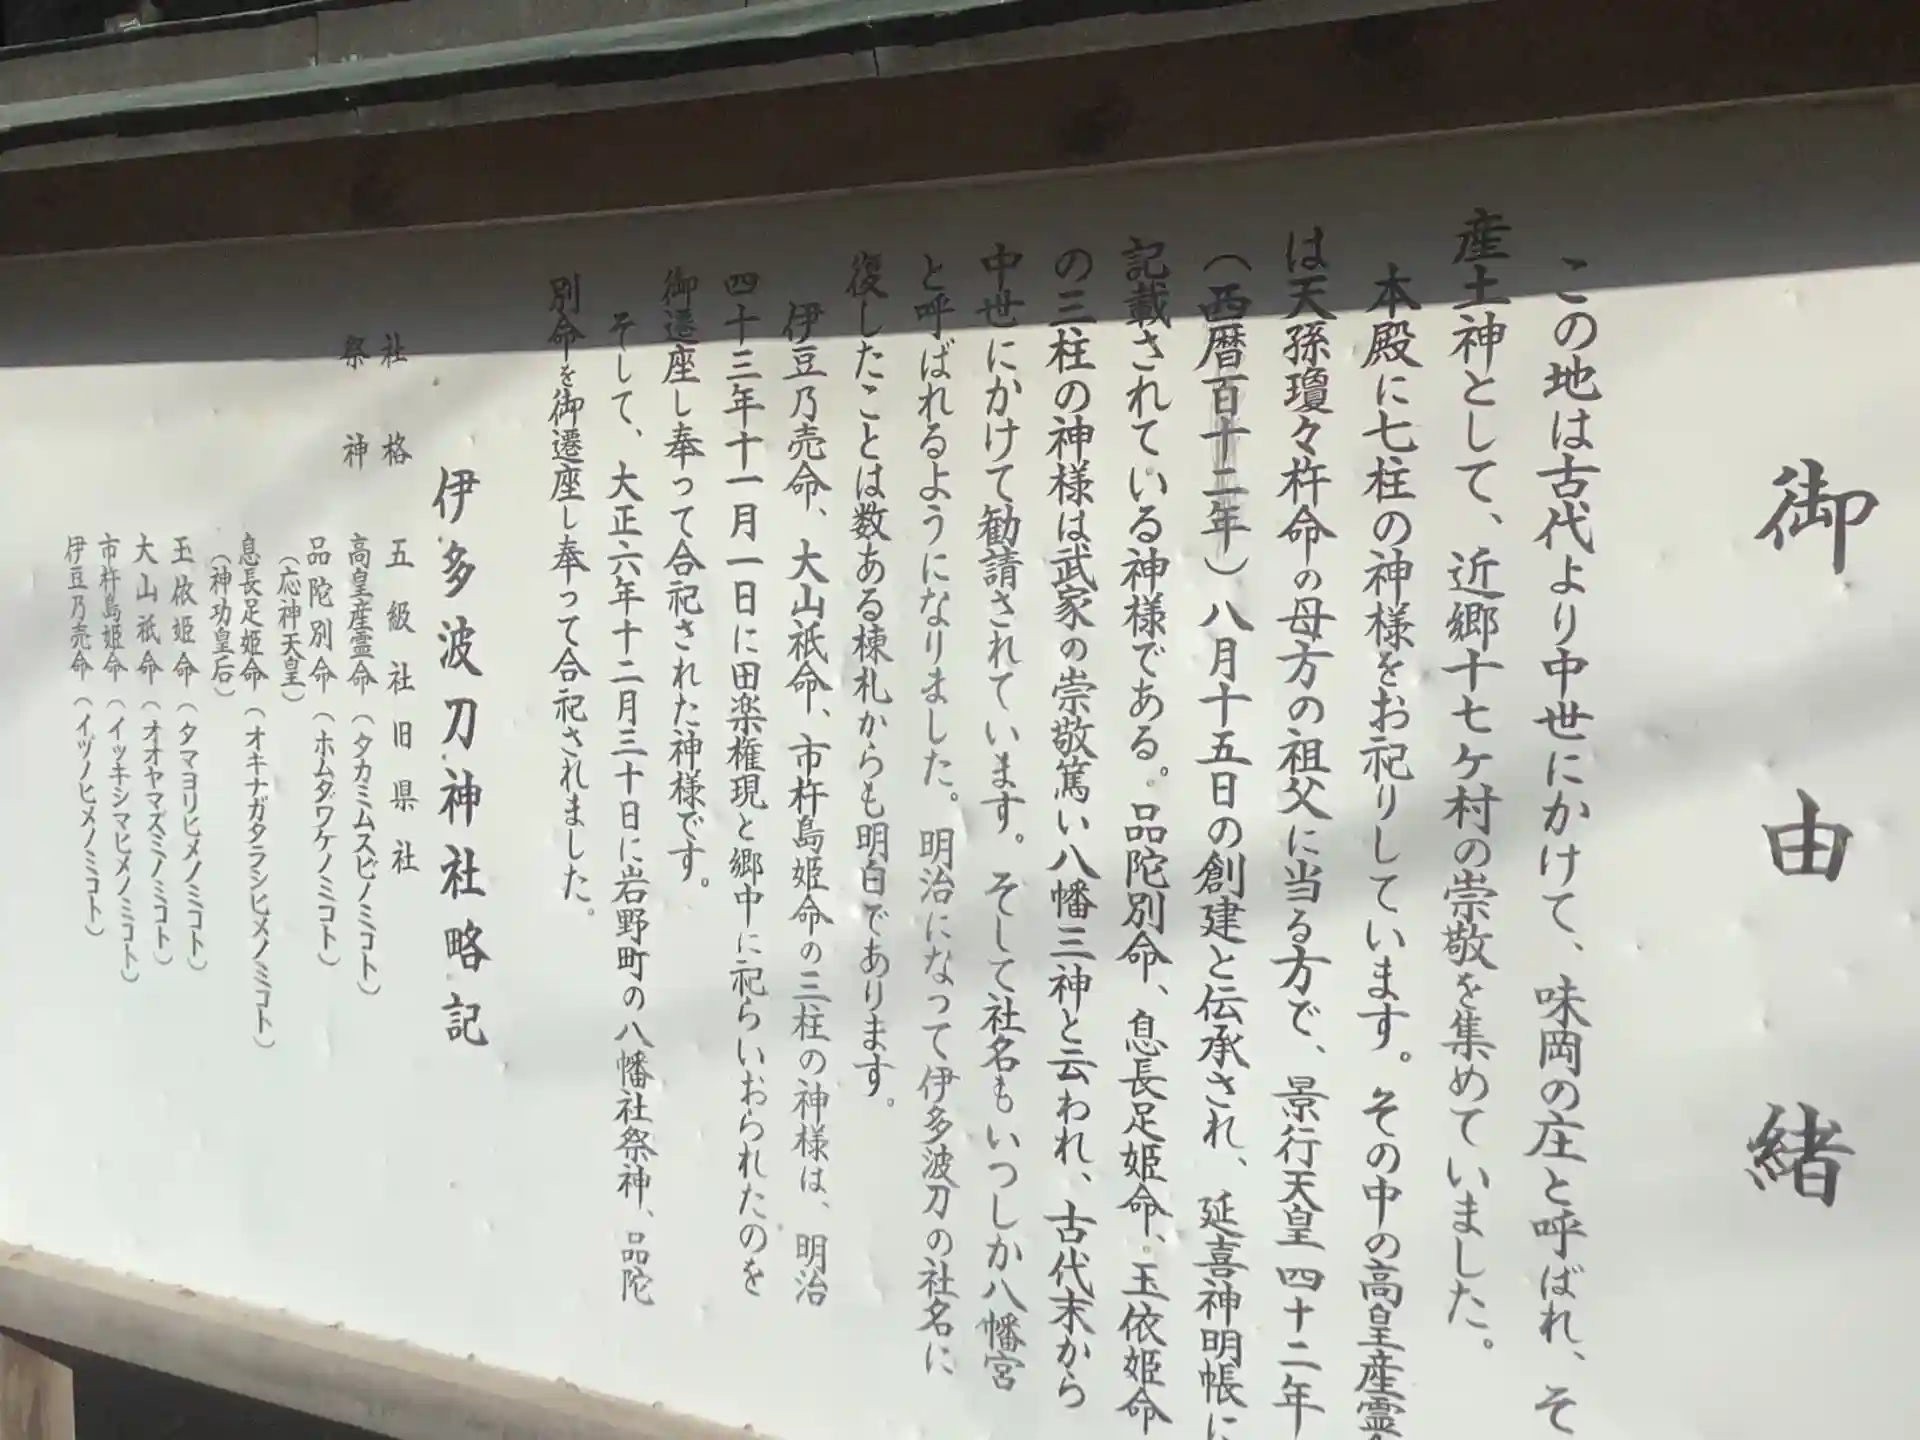 御由緒
この地は古代より中世にかけて、味岡の庄と呼ばれ、そ
産土神として、近郷十七ケ村の崇敬を集めていました。
本殿に七柱の神様をお祀りしています。その中の高皇産霊
は天孫瓊々杵命の母方の祖父に当る方で、景行天皇四十二年
（西暦百十二年）八月十五日の創建と伝承され、延喜神明帳に
記載されている神様である。品陀別命、息長足姫命、玉依姫命
の三柱の神様は武家の崇敬篤い八幡三神と云われ、古代末から
中世にかけて勧請されています。そして社名もいつしか八幡宮
と呼ばれるようになりました。明治になって伊多波刀の社名に
復したことは数ある棟札からも明白であります。
伊豆乃売命、大山祇命、市杵島姫命の三柱の神様は、明治
四十三年十一月一日に田楽権現と郷中に祀らいおられたのを
御遷座し奉って合祀された神様です。
そして、大正六年十二月三十日に岩野町の八幡社祭神、品陀
別命を御遷座し奉って合祀されました。
伊多波刀神社略記
社格 五級社旧県社
祭神 高皇産霊命（タカミムスビノミコト）
品陀別命（ホムダワケノミコト）
（応神天皇）
息長足姫命（オキナガタラシヒメノミコト）
（神功皇后）
玉依姫命（タマヨリヒメノミコト）
大山祇命（オオヤマズミノミコト）
市杵島姫命（イッキシマヒメノミコト）
伊豆乃売命（イヅノヒメノミコト）